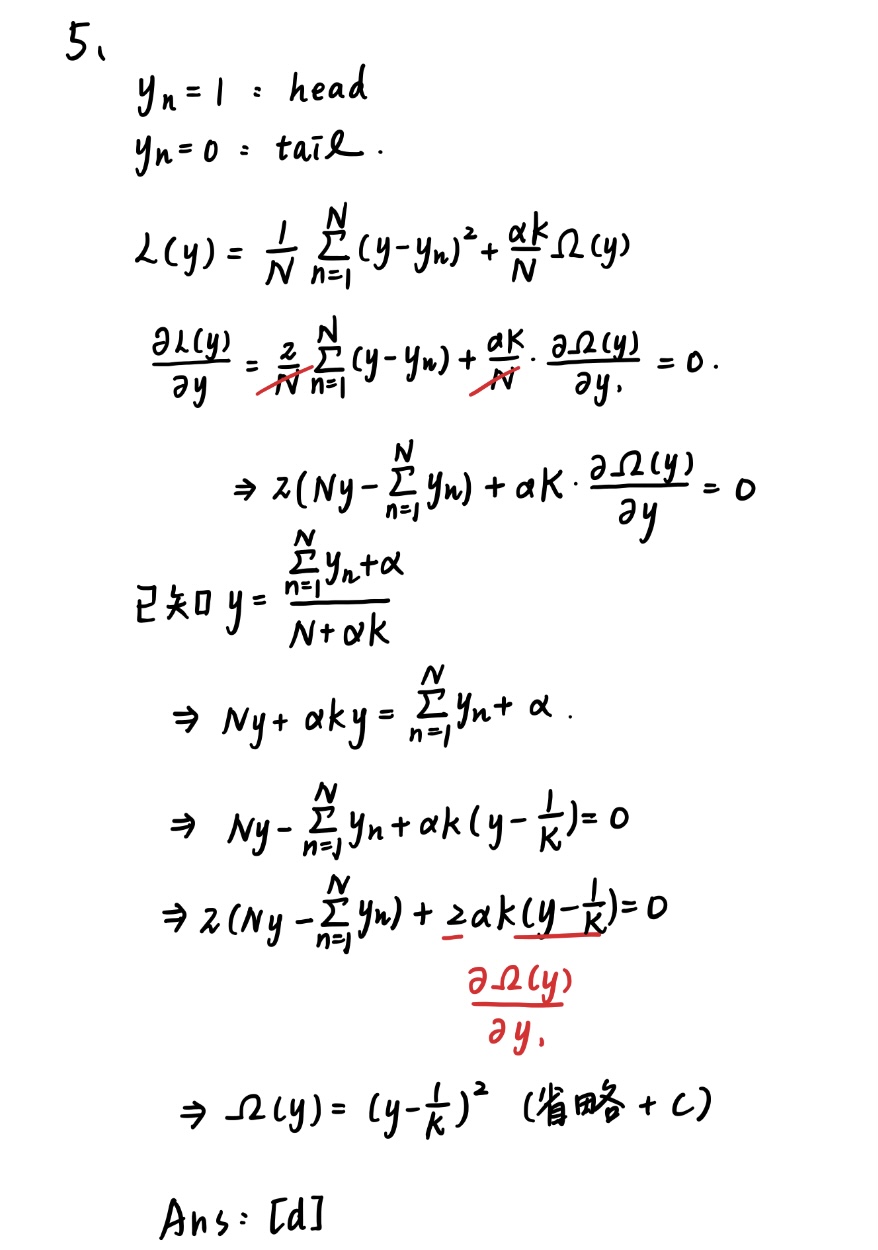 5、
yₙ = 1 : head
yₙ = 0 : tail .
L(y) = 1/N Σ_{n=1}^{N} (y - yₙ)² + αk/N Ω(y)
∂L(y)/∂y = 2/N Σ_{n=1}^{N} (y - yₙ) + αK/N · ∂Ω(y)/∂y. = 0 .
⇒ 2(Ny - Σ_{n=1}^{N} yₙ) + αK · ∂Ω(y)/∂y = 0
已知 y = (Σ_{n=1}^{N} yₙ + α)/(N + αk)
⇒ Ny + αky = Σ_{n=1}^{N} yₙ + α .
⇒ Ny - Σ_{n=1}^{N} yₙ + αk(y - 1/K) = 0
⇒ 2(Ny - Σ_{n=1}^{N} yₙ) + 2αk(y - 1/K) = 0
∂Ω(y)/∂y.
⇒ Ω(y) = (y - 1/K)² (省略 + C)
Ans : [d]